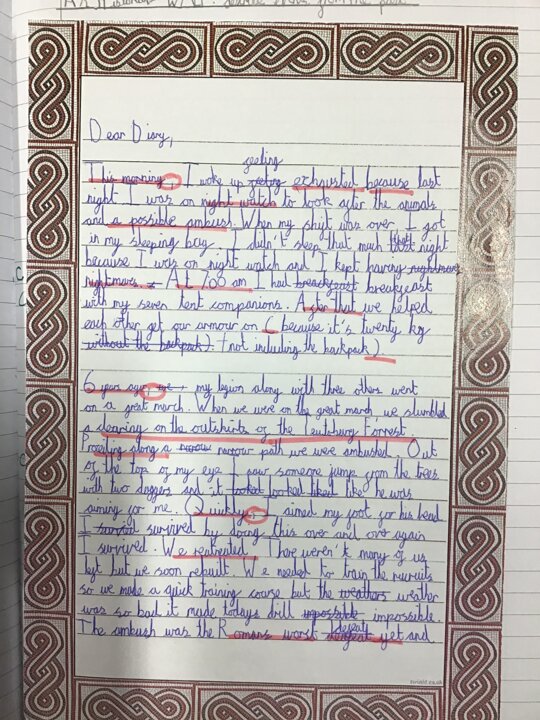 Dear Diary,
feeling
This morning, I woke up feeling exhausted because last
night I was on night watch to look after the animals
and a possible ambush. When my shift was over I got
in my sleeping bag. I didn't sleep that much that night
because I was on night watch and I kept having nightmares
nightmars. At 7:00 am I had breackfeast breakfeast
with my seven tent companions. After that we helped
each other get our armour on ( because it's twenty kg
without the backpack). (not including the backpack)
6 years ago, my legion along with three others went
on a great march. When we were on the great march we stumbled
a clearing on the outskirts of the Teutoburg Forrest.
along a narrow narrow path we were ambushed. Out
of the top of my eye I saw someone jump from the trees
with two daggers and it looked looked liked like he was
aiming for me. Quickly, I aimed my foot for his head
I survied survived by doing this over and over again
I survived. We retreated. There weren't many of us
left but we soon rebuilt. We needed to train the recruits
so we made a quick training course but the weathers weather
was so bad it made todays drill impossible impossible.
defeat
The ambush was the Romans worst defeat yet and
twinkl.co.uk